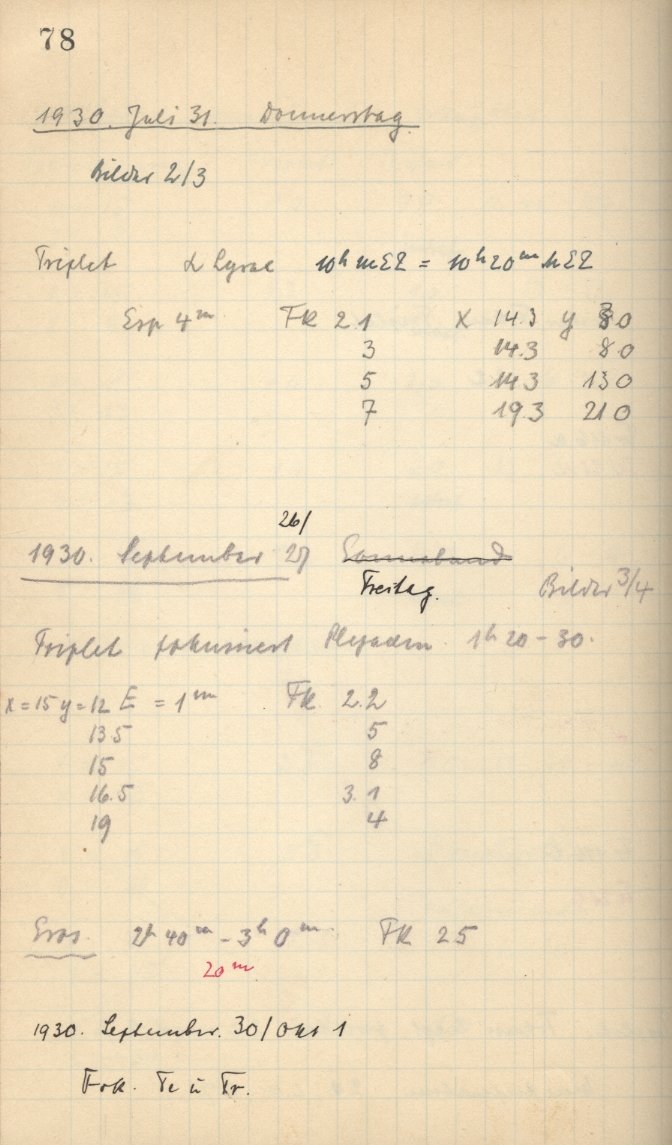 78
1930. Juli 31. Donnerstag.
Bilder 2/3
Triplet α Lyrae 10h MEZ = 10h20m MEZ
Exp 4m FK 2.1 x 14.3 y 80
3 14.3 80
5 14.3 130
7 19.3 210
26/
1930. September 27 Sonnabend
Freitag. Bilder 3/4
Triplet fokussiert Plejaden 1h 20 - 30.
x = 15 y = 12 E = 1m FK 2.2
13.5 5
15 8
16.5 3.1
19 4
Eros. 2h 40m - 3h 0m FK 25
20m
1930. September. 30/Okt 1
Fok. Te u Tr.